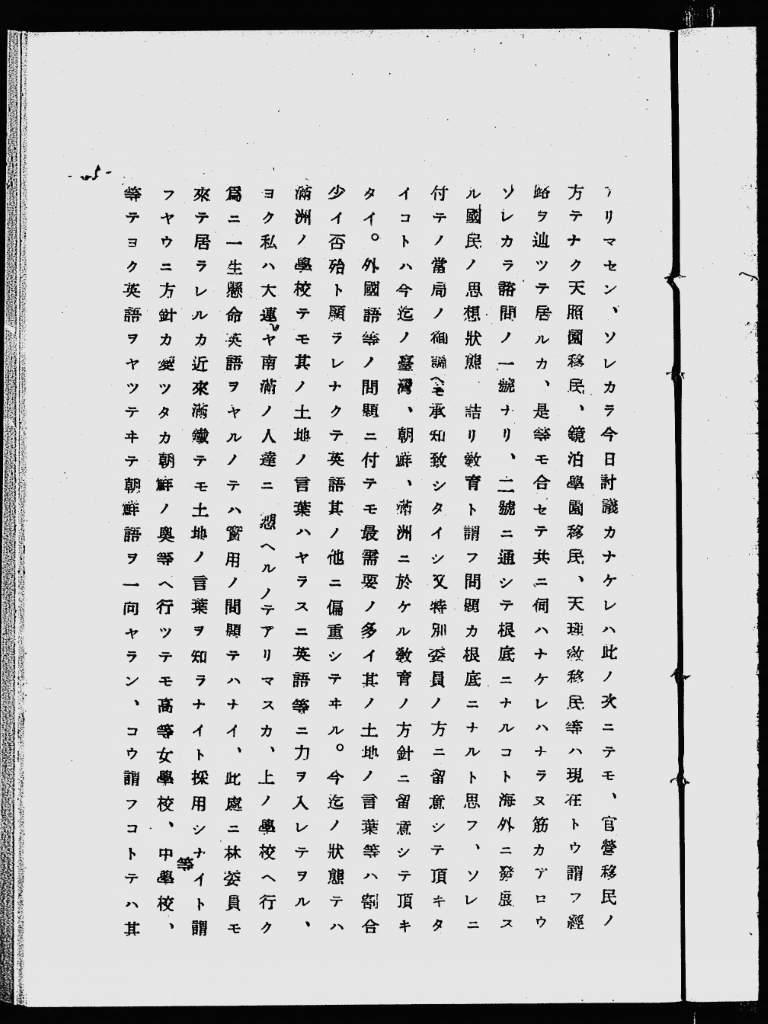 アリマセン、ソレカラ今日討議カナケレハ此ノ次ニテモ、官營移民ノ
方テナク天照園移民、鏡泊學園移民、天理敎移民等ハ現在トウ謂フ經
路ヲ辿ツテ居ルカ、是等モ合セテ共ニ伺ハナケレハナラヌ筋カアロウ
ソレカラ諮問ノ一號ナリ、二號ニ通シテ根底ニナルコト海外ニ發展ス
ル國民ノ思想狀態 詰リ敎育ト謂フ問題カ根底ニナルト思フ、ソレニ
付テノ當局ノ御調ヘモ承知致シタイシ又特別委員ノ方ニ留意シテ頂キタ
イコトハ今迄ノ臺灣、朝鮮、滿洲ニ於ケル敎育ノ方針ニ留意シテ頂キ
タイ。外國語等ノ問題ニ付テモ最需要ノ多イ其ノ土地ノ言葉等ハ割合
少イ否殆ト顧ラレナクテ英語其ノ他ニ偏重シテヰル。今迄ノ狀態テハ
滿洲ノ學校テモ其ノ土地ノ言葉ハヤラスニ英語等ニ力ヲ入レテヲル、
ヨク私ハ大連ヤ南滿ノ人達ニ 想ヘルノテアリマスカ、上ノ學校ヘ行ク
爲ニ一生懸命英語ヲヤルノテハ實用ノ問題テハナイ、此處ニ林委員モ
來テ居ラレルカ近來滿鐵テモ土地ノ言葉ヲ知ラナイト採用シナイト謂
フヤウニ方針カ變ツタカ朝鮮ノ奧等ヘ行ツテモ高等女學校、中學校、
等
等テヨク英語ヲヤツテヰテ朝鮮語ヲ一向ヤラン、コウ謂フコトテハ其
-5-